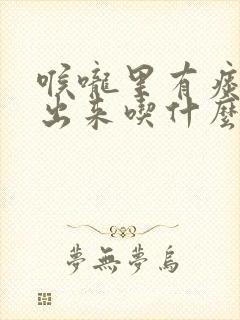 喉嚨里有痰
出来喫什麼
夢無夢烏